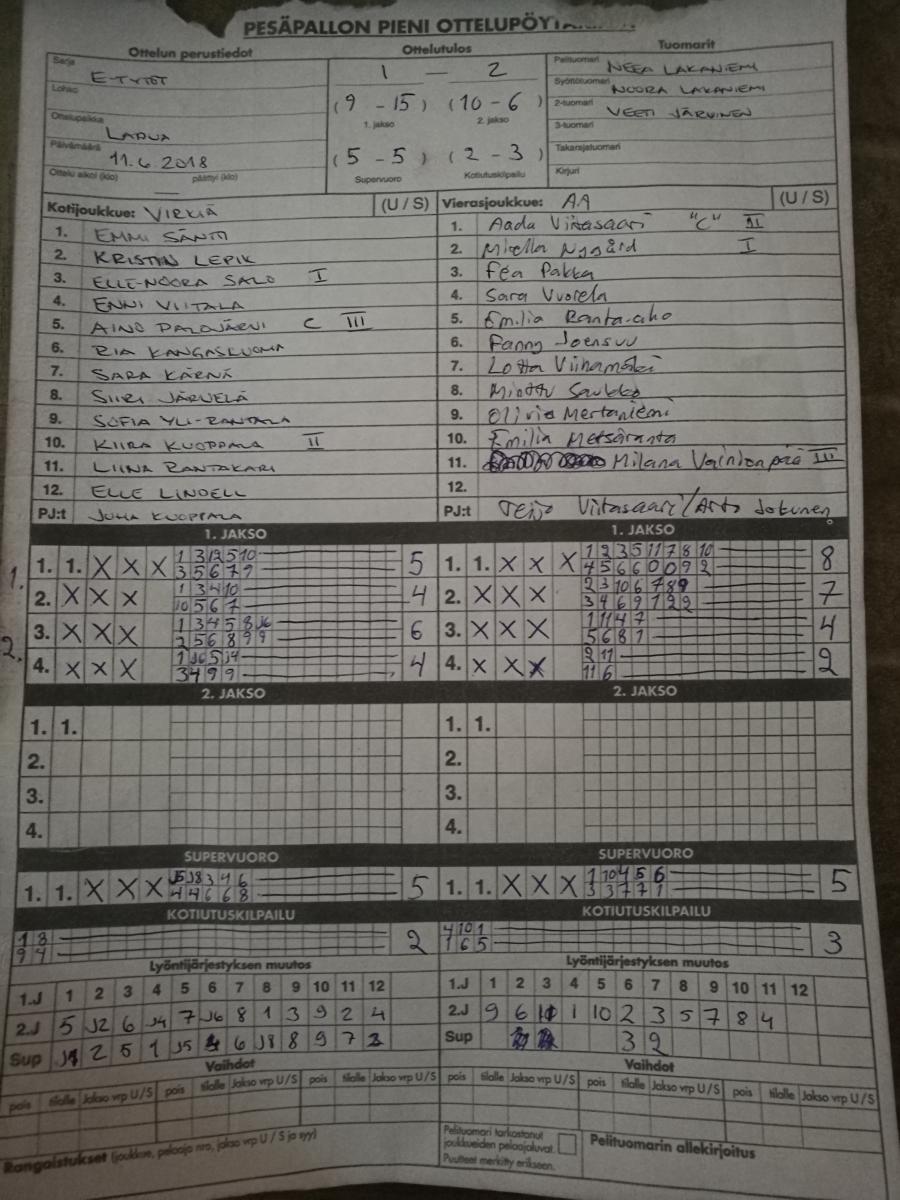 PESÄPALLON PIENI
Ottelun perustiedot Ottelutulos Tuomarit
Sarja E-TYTÖT 1 — 2 Pelituomari NEEA LAKANIEMI
Lohko Syöttötuomari NOORA LAKANIEMI
(9 - 15) (10 - 6) 2-tuomari VEETI JÄRVINEN
Ottelupaikka LAPUA 1. jakso 2. jakso 3-tuomari
Päivämäärä 11.6.2018 (5 - 5) (2 - 3) Takarajatuomari
Ottelu alkoi (klo) — päättyi (klo) Supervuoro Kotiutuskilpailu Kirjuri
Kotijoukkue: VIRKIÄ (U / S) Vierasjoukkue: AA (U / S)
1. EMMI SÄNTTI 1. Aada Viitasaari "C" III
2. KRISTIN LEPIK 2. Mirella Nygård I
3. ELLE-NOORA SALO I 3. Fea Pakka
4. ENNI VIITALA 4. Sara Vuorela
5. AINO PALOJÄRVI C III 5. Emilia Ranta-aho
6. RIA KANGASLUOMA 6. Fanny Joensuu
7. SARA KÄRNÄ 7. Lotta Viinamäki
8. SIIRI JÄRVELÄ 8. Minttu Saukko
9. SOFIA YLI-RANTALA 9. Olivia Mertaniemi
10. KIIRA KUOPPALA II 10. Emilia Metsäranta
11. LIINA RANTAKARI 11. Milana Vainionpää III
12. ELLE LINDELL 12.
PJ:t JUHA KUOPPALA PJ:t Teijo Viitasaari/Arto Jokunen
1. JAKSO 1. JAKSO
1. 1. 1. X X X 5 1. 1. X X X 1 2 3 5 11 7 8 10 8
3 5 6 7 9 4 5 6 6 0 0 9 2
2. X X X 1 3 4 10 4 2. X X X 2 3 10 6 7 8 9 7
10 5 6 7 3 4 6 9 1 2 2
2. 3. X X X 1 3 4 5 8 6 3. X X X 1 11 4 7 4
2 5 6 8 9 9 5 6 8 1
4. X X X 4 4. X X X 2 11 2
3 4 9 9 11 6
2. JAKSO 2. JAKSO
1. 1. 1. 1.
2. 2.
3. 3.
4. 4.
SUPERVUORO SUPERVUORO
1. 1. X X X J5 J8 3 4 6 5 1. 1. X X X 1 10 4 5 6 5
4 4 6 6 8 3 3 7 7 1
KOTIUTUSKILPAILU KOTIUTUSKILPAILU
1 8 2 4 10 1 3
9 4 1 6 5
Lyöntijärjestyksen muutos Lyöntijärjestyksen muutos
1.J 1 2 3 4 5 6 7 8 9 10 11 12 1.J 1 2 3 4 5 6 7 8 9 10 11 12
2.J 5 J2 6 J4 7 J6 8 1 3 9 2 4 2.J 9 6 11 1 10 2 3 5 7 8 4
Sup 2 5 1 J5 6 J8 8 9 7 Sup 3 2
Vaihdot Vaihdot
pois tilalle Jakso vrp U / S pois tilalle Jakso vrp U / S pois tilalle Jakso vrp U / S pois tilalle Jakso vrp U / S pois tilalle Jakso vrp U / S pois tilalle Jakso vrp U / S
Rangaistukset (joukkue, pelaaja nro, jakso vrp U / S ja syy) Pelituomari tarkastanut Pelituomarin allekirjoitus
joukkueiden pelaajaluvat.
Puutteet merkitty erikseen.